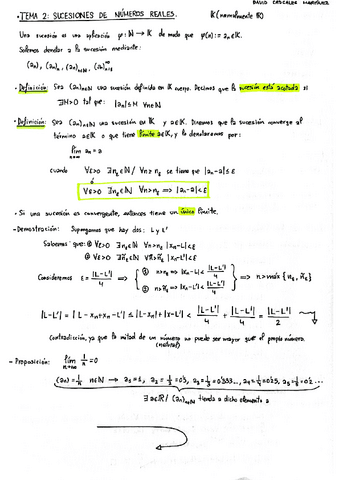 DAVID CASCALES MARTÍNEZ
· TEMA 2: SUCESIONES DE NÚMEROS REALES. K (normalmente ℝ)
Una sucesión es una aplicación φ: ℕ → K de modo que φ(n) := aₙ ∈ K.
Solemos denotar a la sucesión mediante:
(aₙ), (aₙ)ₙ, (aₙ)ₙ∈ℕ, (aₙ)ₙ₌₁^∞
· Definición: Sea (aₙ)ₙ∈ℕ una sucesión definida en K cuerpo. Decimos que la sucesión está acotada si
∃M>0 tal que: |aₙ| ≤ M ∀n∈ℕ
· Definición: Sea (aₙ)ₙ∈ℕ una sucesión en K y a∈K. Diremos que la sucesión converge al
término a∈K o que tiene límite a∈K, y lo denotaremos por:
lim aₙ = a
n→∞
cuando ∀ε>0 ∃n_ε∈ℕ / ∀n≥n_ε se tiene que |aₙ-a| ≤ ε
∀ε>0 ∃n_ε∈ℕ ∀n>n_ε ⇒ |aₙ-a| < ε
· Si una sucesión es convergente, entonces tiene un único límite.
- Demostración: Supongamos que hay dos: L y L'
Sabemos que: ① ∀ε>0 ∃n_ε∈ℕ ∀n>n_ε |xₙ-L| < ε
② ∀ε>0 ∃ñ_ε∈ℕ ∀n>ñ_ε |xₙ-L'| < ε
Consideremos ε = |L-L'|/4 ⇒ { ① n>n_ε ⇒ |xₙ-L| < |L-L'|/4
② n>ñ_ε ⇒ |xₙ-L'| < |L-L'|/4 } ⇒ n > max { n_ε, ñ_ε }
|L-L'| = |L-xₙ+xₙ-L'| ≤ |L-xₙ| + |xₙ-L'| < |L-L'|/4 + |L-L'|/4 = |L-L'|/2
Contradicción, ya que la mitad de un número no puede ser mayor que el propio número.
- Proposición: lim 1/n = 0
n→∞
(aₙ) = 1/n n∈ℕ → a₁=1, a₂=1/2=0'5, a₃=1/3=0'333..., a₄=1/4=0'25, a₅=1/5=0'2 ...
∃ a∈ℝ / (aₙ)ₙ∈ℕ tienda a dicho elemento a